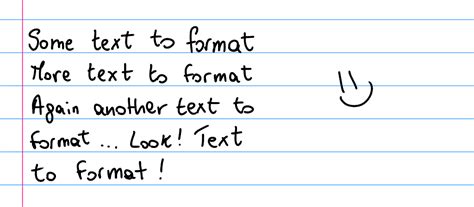 Some text to format
More text to format
Again another text to
format ... Look! Text
to format!